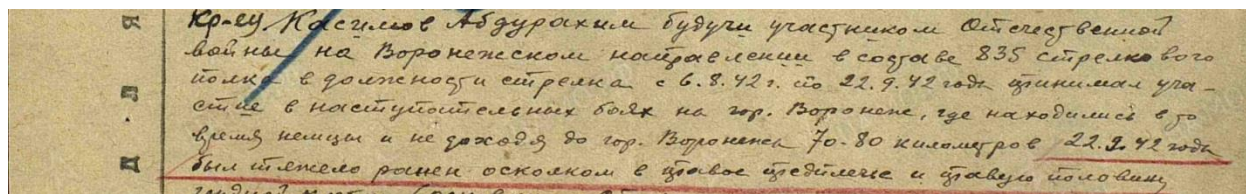 Кр-ец Касимов Абдурахим будучи участником Отечественной
войны на Воронежском направлении в составе 835 стрелкового
полка в должности стрелка с 6.8.42 г. по 22.9.42 года принимал уча-
стие в наступательных боях на гор. Воронеж, где находились в то
время немцы и не доходя до гор. Воронежа 70-80 километров 22.9.42 года
был тяжело ранен осколком в правое предплечье и правую половину